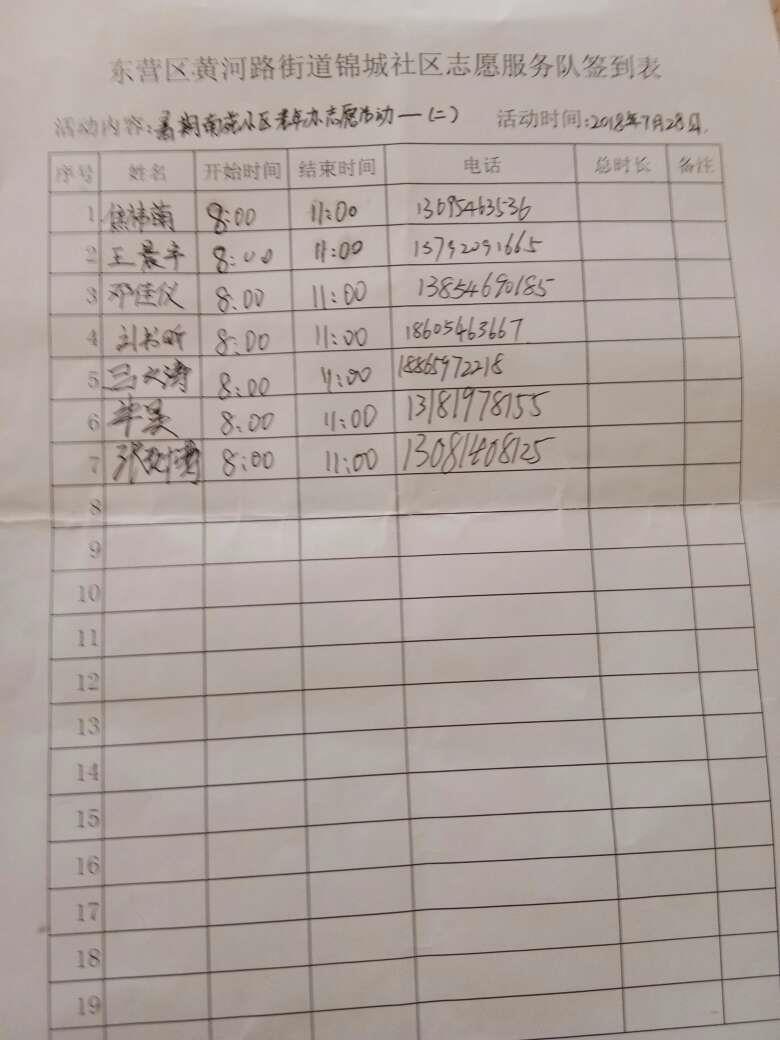 东营区黄河路街道锦城社区志愿服务队签到表
活动内容:暑期南苑小区老年办志愿活动—(二) 活动时间:2018年7月28日.
序号 姓名 开始时间 结束时间 电话 总时长 备注
1 焦祎菊 8:00 11:00 13695463536
2 王晨宇 8:00 11:00 13792091665
3 邓佳仪 8:00 11:00 13854690185
4 刘书昕 8:00 11:00 18605463667
5 文涛 8:00 11:00 18865972218
6 毕昊 8:00 11:00 13181978155
7 张 8:00 11:00 13081408125
8
9
10
11
12
13
14
15
16
17
18
19